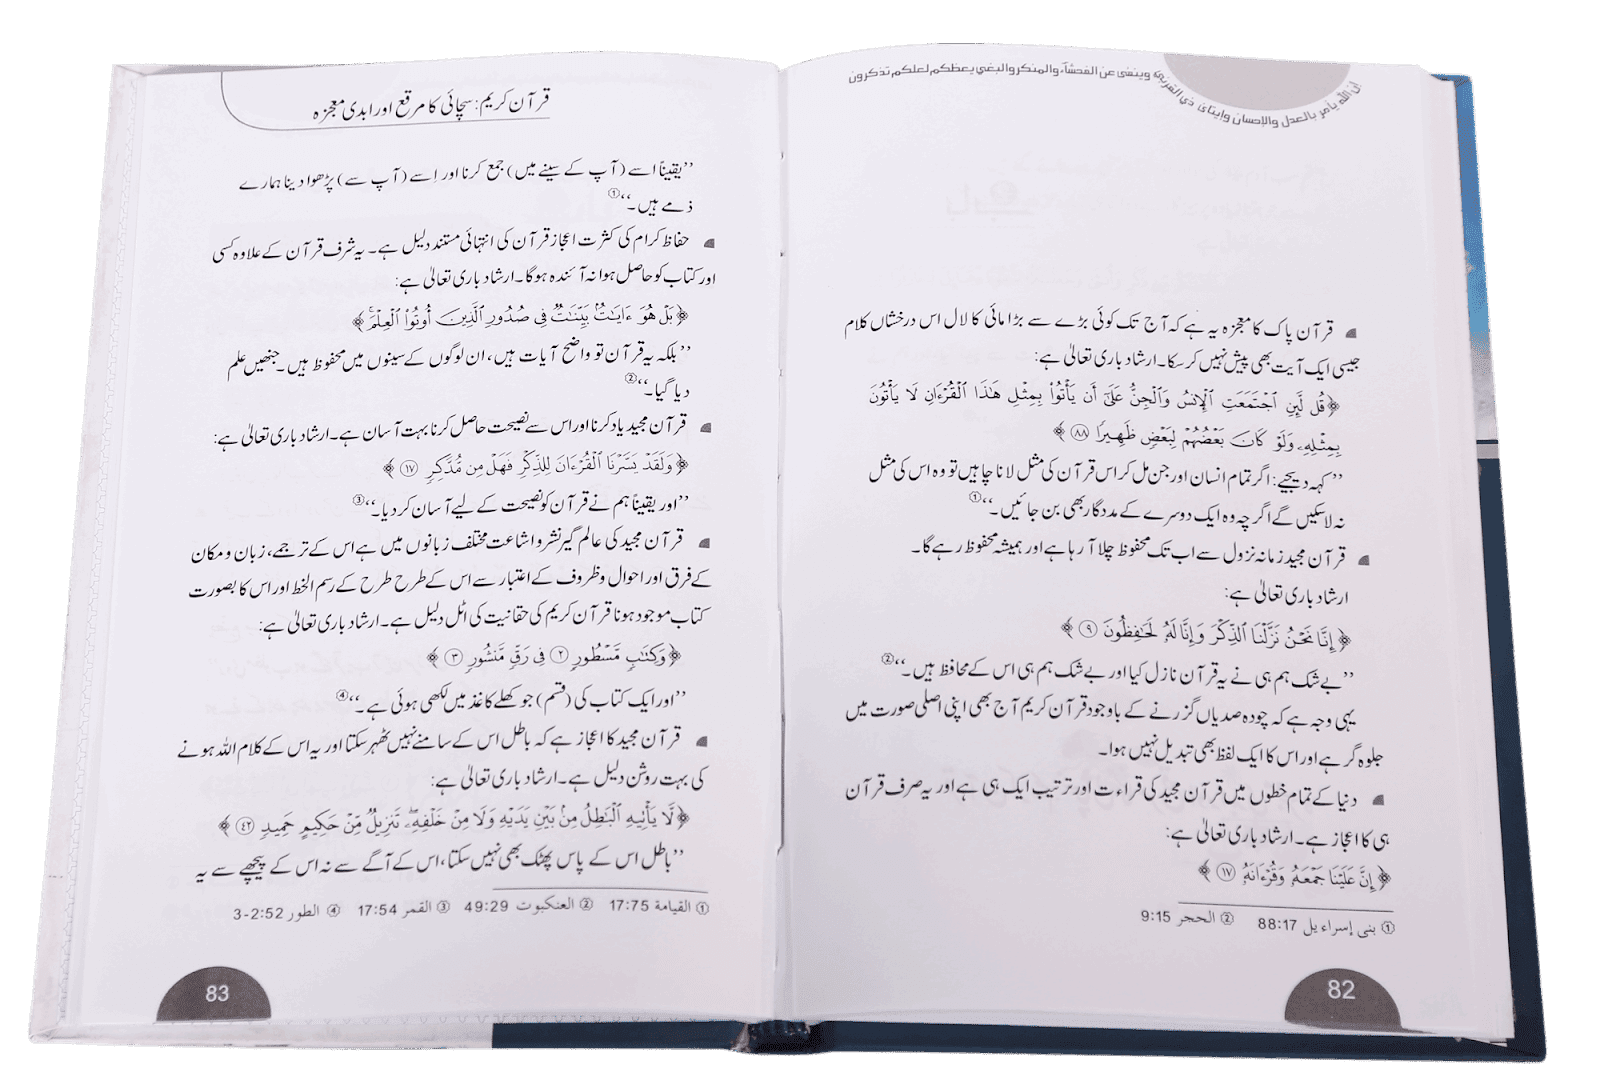 وينهى عن الفحشاء والمنكر والبغي يعظكم لعلكم تذكرون
ان الله يأمر بالعدل والإحسان وإيتائ ذي القربى
قرآن پاک کا معجزہ یہ ہے کہ آج تک کوئی بڑے سے بڑا مائی کا لال اس درخشاں کلام
جیسی ایک آیت بھی پیش نہیں کر سکا۔ ارشاد باری تعالیٰ ہے:
﴿قُل لَّئِنِ ٱجْتَمَعَتِ ٱلْإِنسُ وَٱلْجِنُّ عَلَىٰٓ أَن يَأْتُوا۟ بِمِثْلِ هَـٰذَا ٱلْقُرْءَانِ لَا يَأْتُونَ
بِمِثْلِهِۦ وَلَوْ كَانَ بَعْضُهُمْ لِبَعْضٍ ظَهِيرًا ٨٨﴾
’’کہہ دیجیے: اگر تمام انسان اور جن مل کر اس قرآن کی مثل لانا چاہیں تو وہ اس کی مثل
نہ لا سکیں گے اگرچہ وہ ایک دوسرے کے مددگار بھی بن جائیں۔‘‘①
قرآن مجید زمانہ نزول سے اب تک محفوظ چلا آ رہا ہے اور ہمیشہ محفوظ رہے گا۔
ارشاد باری تعالیٰ ہے:
﴿إِنَّا نَحْنُ نَزَّلْنَا ٱلذِّكْرَ وَإِنَّا لَهُۥ لَحَـٰفِظُونَ ٩﴾
’’بے شک ہم ہی نے یہ قرآن نازل کیا اور بے شک ہم ہی اس کے محافظ ہیں۔‘‘②
یہی وجہ ہے کہ چودہ صدیاں گزرنے کے باوجود قرآن کریم آج بھی اپنی اصلی صورت میں
جلوہ گر ہے اور اس کا ایک لفظ بھی تبدیل نہیں ہوا۔
دنیا کے تمام خطوں میں قرآن مجید کی قراءت اور ترتیب ایک ہی ہے اور یہ صرف قرآن
ہی کا اعجاز ہے۔ ارشاد باری تعالیٰ ہے:
﴿إِنَّ عَلَيْنَا جَمْعَهُۥ وَقُرْءَانَهُۥ ١٧﴾
① بنی إسراءيل 88:17 ② الحجر 9:15
82
قرآن کریم: سچائی کا مرقع اور ابدی معجزہ
’’یقیناً اسے (آپ کے سینے میں) جمع کرنا اور اسے (آپ سے) پڑھوا دینا ہمارے
ذمے ہیں۔‘‘①
حفاظ کرام کی کثرت اعجاز قرآن کی انتہائی مستند دلیل ہے۔ یہ شرف قرآن کے علاوہ کسی
اور کتاب کو حاصل ہوا نہ آئندہ ہوگا۔ ارشاد باری تعالیٰ ہے:
﴿بَلْ هُوَ ءَايَـٰتٌۢ بَيِّنَـٰتٌ فِى صُدُورِ ٱلَّذِينَ أُوتُوا۟ ٱلْعِلْمَ ۚ﴾
’’بلکہ یہ قرآن تو واضح آیات ہیں، ان لوگوں کے سینوں میں محفوظ ہیں۔ جنھیں علم
دیا گیا۔‘‘②
قرآن مجید یاد کرنا اور اس سے نصیحت حاصل کرنا بہت آسان ہے۔ ارشاد باری تعالیٰ ہے:
﴿وَلَقَدْ يَسَّرْنَا ٱلْقُرْءَانَ لِلذِّكْرِ فَهَلْ مِن مُّدَّكِرٍ ١٧﴾
’’اور یقیناً ہم نے قرآن کو نصیحت کے لیے آسان کر دیا۔‘‘③
قرآن مجید کی عالم گیر نشر و اشاعت مختلف زبانوں میں ہے اس کے ترجمے، زبان و مکان
کے فرق اور احوال و ظروف کے اعتبار سے اس کے طرح طرح کے رسم الخط اور اس کا بصورت
کتاب موجود ہونا قرآن کریم کی حقانیت کی اٹل دلیل ہے۔ ارشاد باری تعالیٰ ہے:
﴿وَكِتَـٰبٍ مَّسْطُورٍ ٢ فِى رَقٍّ مَّنشُورٍ ٣﴾
’’اور ایک کتاب کی (قسم) جو کھلے کاغذ میں لکھی ہوئی ہے۔‘‘④
قرآن مجید کا اعجاز ہے کہ باطل اس کے سامنے نہیں ٹھہر سکتا اور یہ اس کے کلام اللہ ہونے
کی بہت روشن دلیل ہے۔ ارشاد باری تعالیٰ ہے:
﴿لَّا يَأْتِيهِ ٱلْبَـٰطِلُ مِنۢ بَيْنِ يَدَيْهِ وَلَا مِنْ خَلْفِهِۦ ۖ تَنزِيلٌ مِّنْ حَكِيمٍ حَمِيدٍ ٤٢﴾
’’باطل اس کے پاس پھٹک بھی نہیں سکتا، اس کے آگے سے نہ اس کے پیچھے سے یہ
① القيامة 17:75 ② العنكبوت 49:29 ③ القمر 17:54 ④ الطور 3-2:52
83